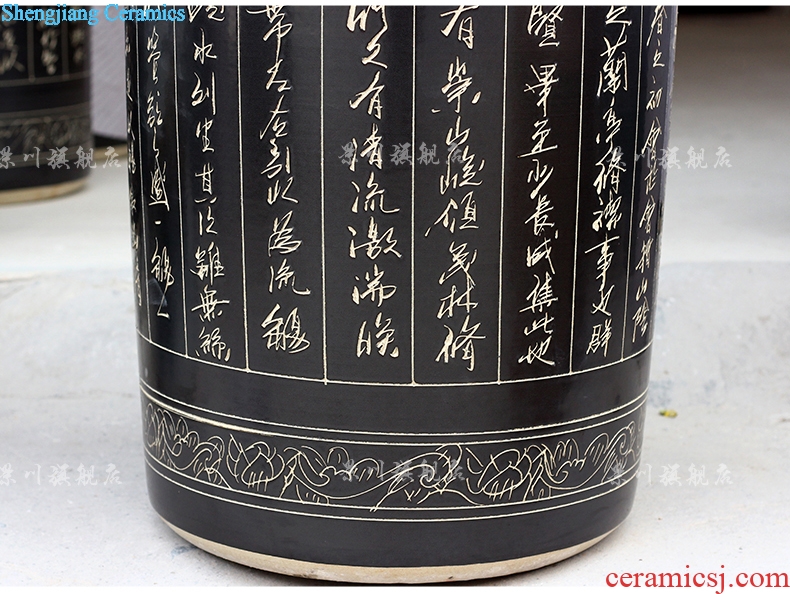 Shengjiang Ceramics
春之初會於會稽山陰
之蘭亭脩禊事也群
賢畢至少長咸集此地
有崇山峻領茂林脩
竹又有清流激湍暎
帶左右引以為流觴
曲水列坐其次雖無絲
管弦之盛一觴一
景川旗舰店
景川旗舰店
景川旗舰店
景川旗舰店
景川旗舰店
景川旗舰店
ceramicsj.com